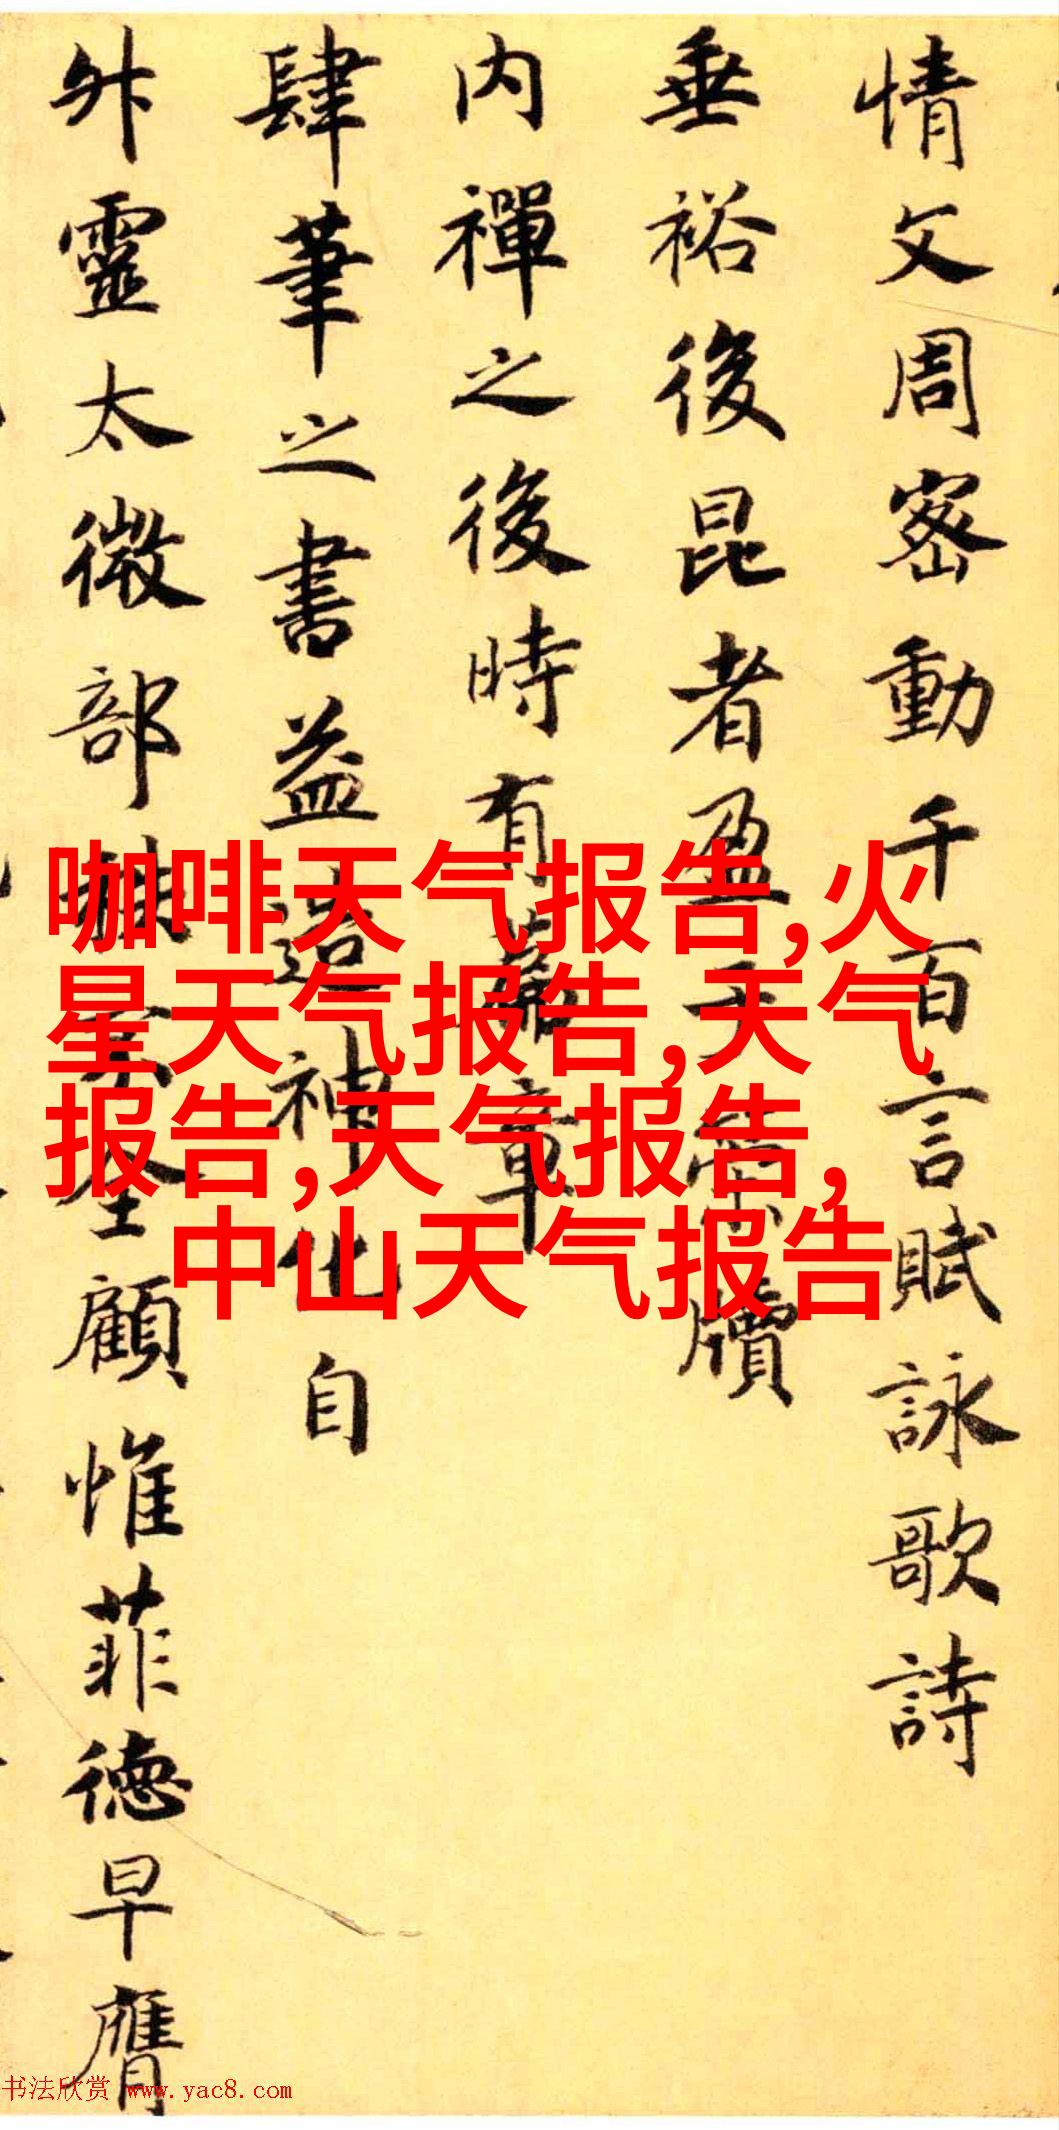 情文周密動千百言賦詠歌詩
垂裕後昆者盈于緗牘
内禪之後時有篇章
肆筆之書益造神化自
升靈太微部
顧惟菲德早膺
咖啡天气报告,火
星天气报告,天气
报告,天气报告,
中山天气报告
书法欣赏 www.yac8.com